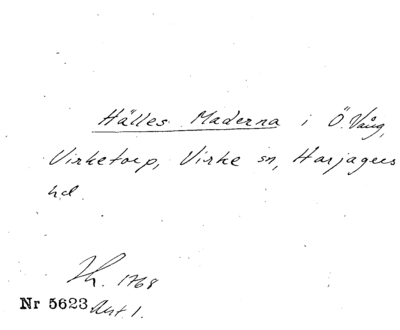 Hälles Maderna i Ö. Vång,
Virketorp, Virke sn, Harjagers
hd.
Th. 1768
Nr 5623 Akt 1.